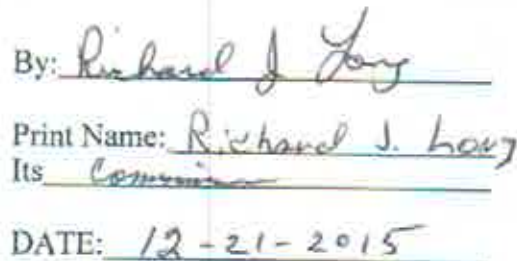 By: Richard J Long
Print Name: Richard J. Long
Its
DATE: 12-21-2015